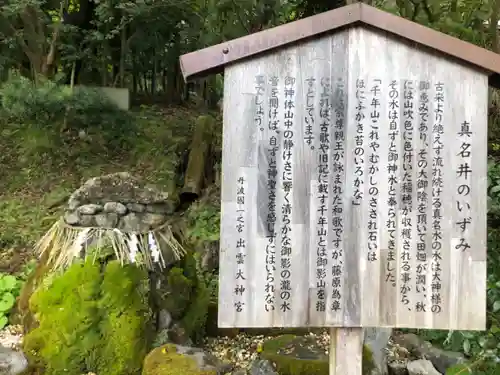 真名井のいずみ
古来より絶えず流れ続ける真名の水は大神様の
御恵みであり、その大御陰を頂いて田畑が潤い、秋
には山吹色に色付いた稲穂が収穫される事から、
その水は自ずと御神水と奉られてきました。
「千年山これやむかしのさされ石いは
ほにふかき苔のいろかな」
これは宗尊親王が詠まれた和歌ですが、藤原為章
によれば、古歌や旧記に載す千年山とは御影山を指
すとしています。
御神体山中の静けさに響く清らかな御影の瀧の水
音を聞けば、自ずと神聖さを感じずにはいられない
事でしょう。
丹波國一之宮 出雲大神宮